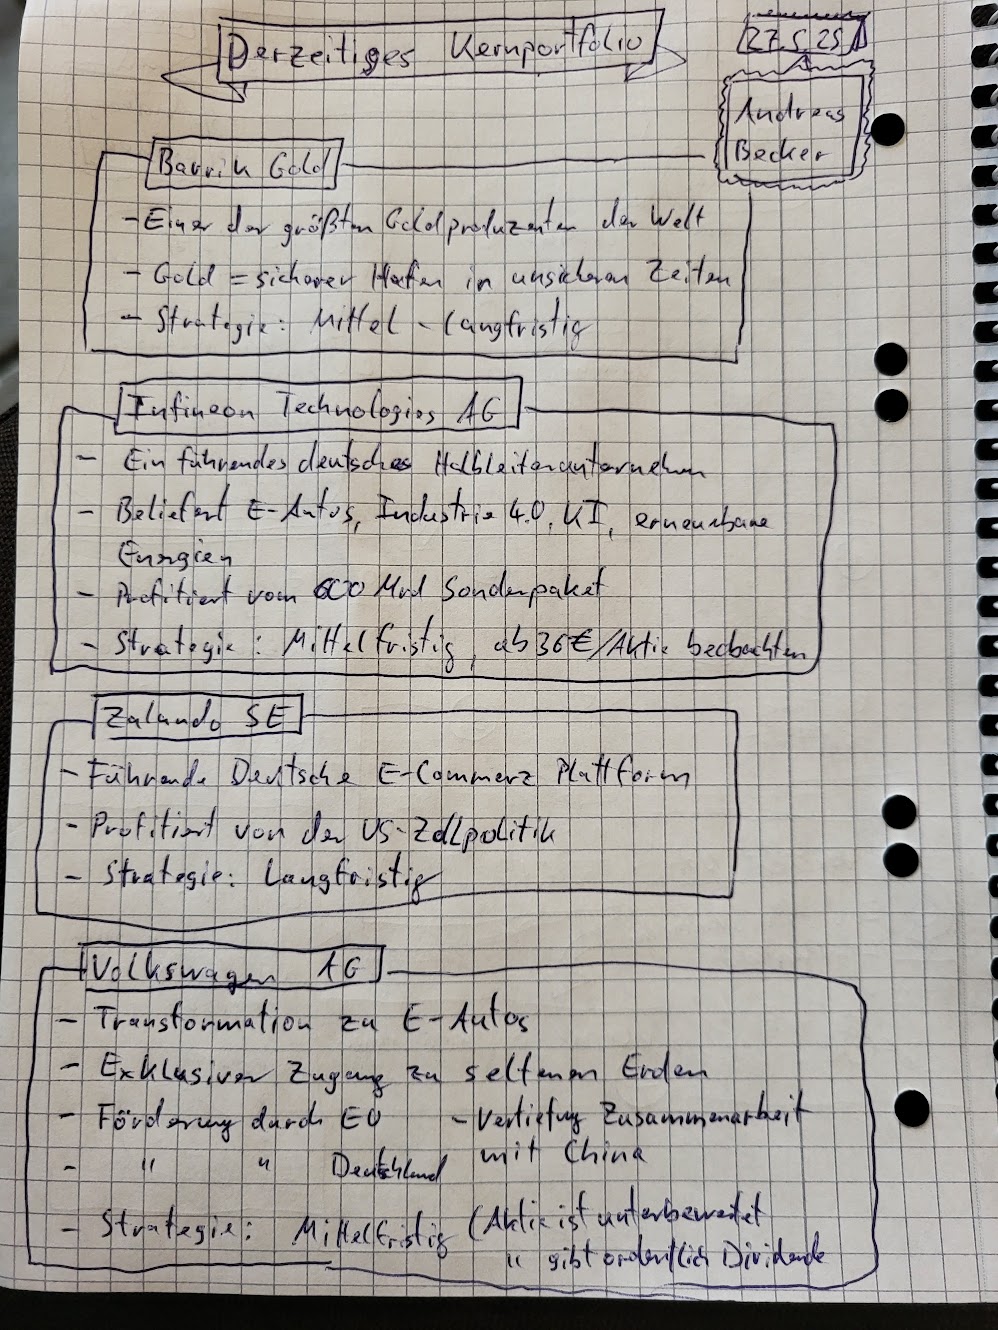 Derzeitiges Kernportfolio
27.5.25
Andreas
Becker
Barrik Gold
- Einer der größten Goldproduzenten der Welt
- Gold = sicherer Hafen in unsicheren Zeiten
- Strategie: Mittel - Langfristig
Infineon Technologies AG
- Ein führendes deutsches Halbleiterunternehmen
- Beliefert E-Autos, Industrie 4.0, KI, erneuerbare
Energien
- Profitiert vom 600 Mrd Sonderpaket
- Strategie: Mittelfristig, ab 36€/Aktie beobachten
Zalando SE
- Führende Deutsche E-Commerz Plattform
- Profitiert von der US-Zollpolitik
- Strategie: Langfristig
Volkswagen AG
- Transformation zu E-Autos
- Exklusiver Zugang zu seltenen Erden
- Förderung durch EU - Vertiefung Zusammenarbeit
mit China
- " " Deutschland
- Strategie: Mittelfristig (Aktie ist unterbewertet
" gibt ordentlich Dividende